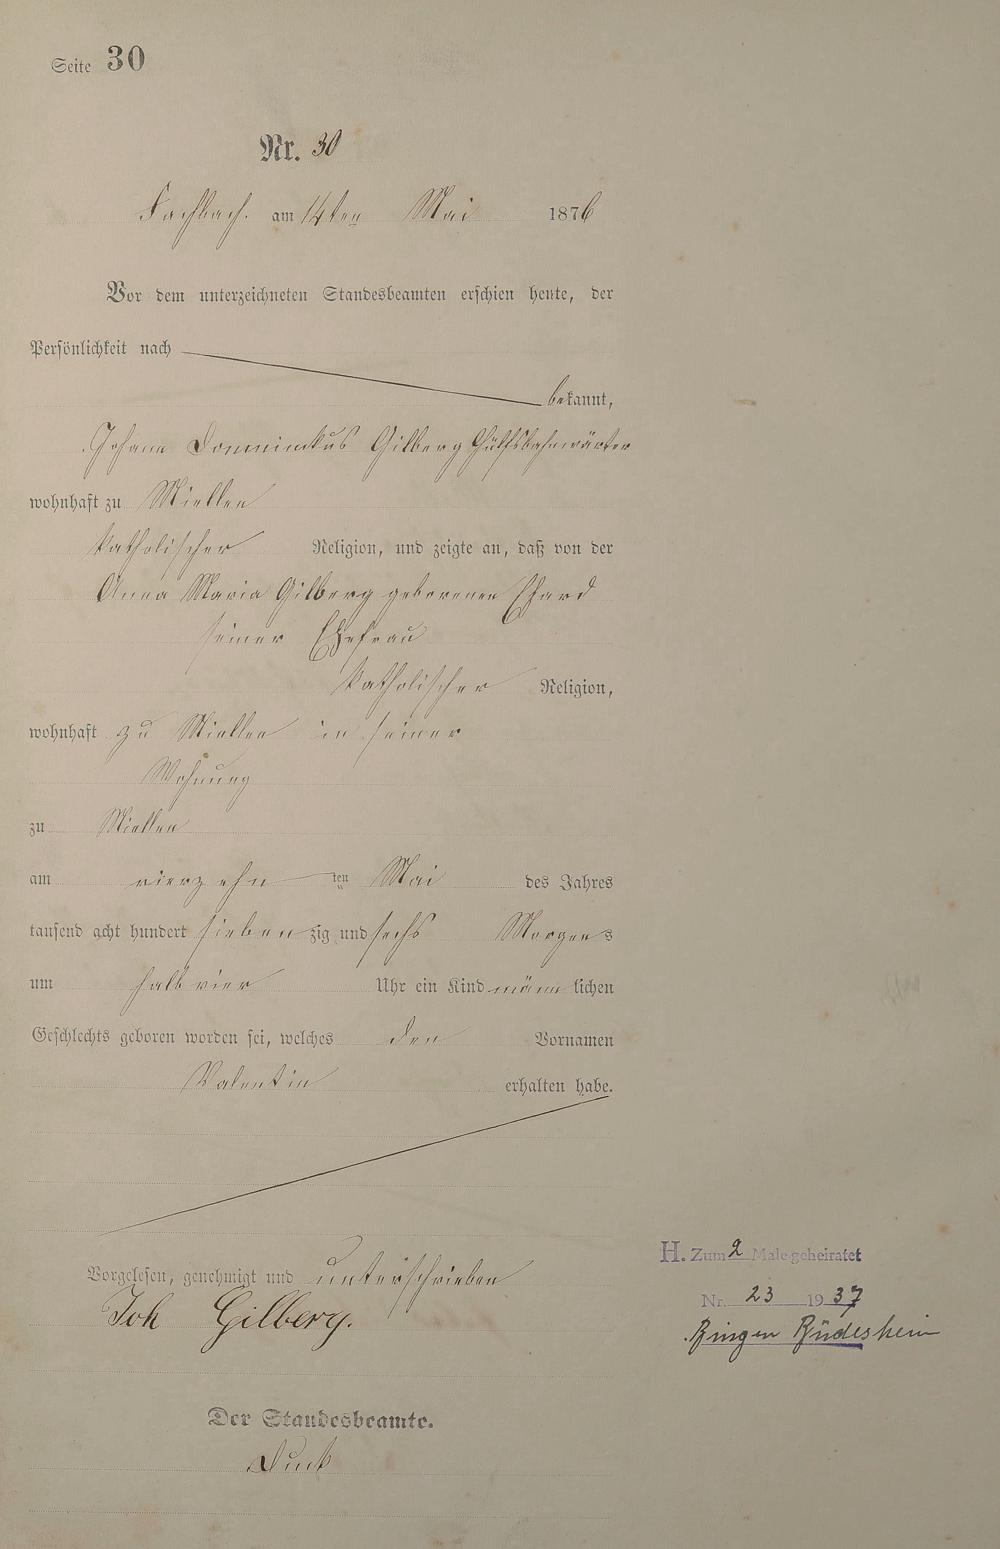 Seite 30
Nr. 30
Fachbach. am 14ten Mai 1876
Vor dem unterzeichneten Standesbeamten erschien heute, der
Persönlichkeit nach
bekannt,
Johann Dominikus Gilberg Hülfsbahnwärter
wohnhaft zu Miellen
katholischer Religion, und zeigte an, daß von der
Anna Maria Gilberg geborenen Ehard
seiner Ehefrau
katholischer Religion,
wohnhaft zu Miellen in seiner
Wohnung
zu Miellen
am vierzehn ten Mai des Jahres
tausend acht hundert siebenzig und sechs Morgens
um halb vier Uhr ein Kind männlichen
Geschlechts geboren worden sei, welches den Vornamen
Valentin erhalten habe.
Vorgelesen, genehmigt und unterschrieben
Joh Gilberg.
Der Standesbeamte.
H. Zum 2 Male geheiratet
Nr. 23 1937
Bingen Büdesheim